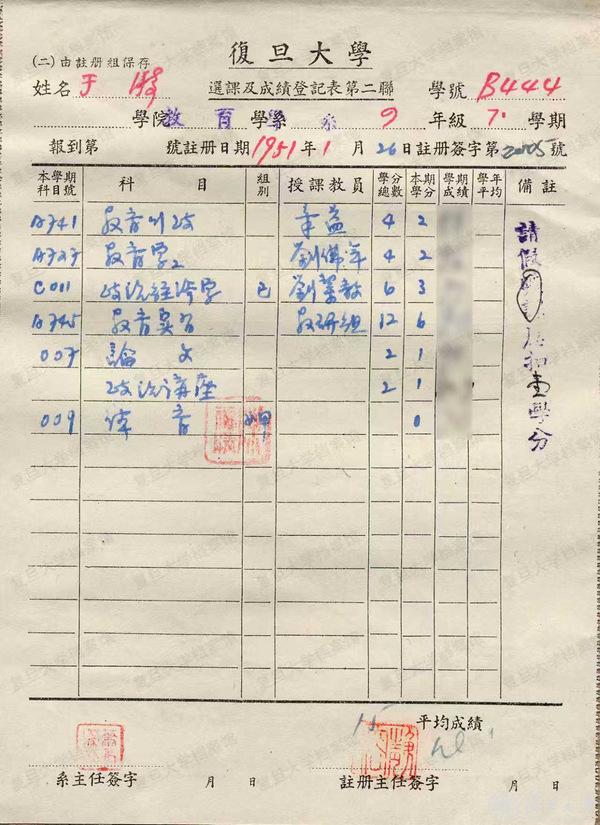 復旦大學
(二)由註册組保存
姓名 于 選課及成績登記表第二聯 學號 B444
學院 教育 學系 年級 7. 學期
報到第 號註册日期 1951年1月26日註册簽字第 號
本學期科目號 科目 組別 授課教員 學分總數 本期學分 學期成績 學年平均 備註
A741 教育行政 章益 4 2
A727 教育學2 劉佛年 4 2
C011 政治經濟學 己 6 3
A745 教育實習 教研組 12 6
007 論文 2 1
政治講座 2 1
009 体育 0
請假 學分
平均成績
15
系主任簽字 月 日 註册主任簽字 月 日
复旦大学档案馆